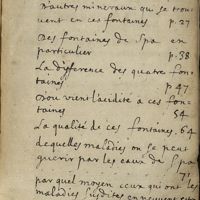 D'autres mineraux qui se trou
uent en ces fontaines p. 27
Des fontaines de Spa en
particulier p. 38
La difference des quatre fon
taines p 47
D'ou vient l'acidite a ces fon
taines 54
La qualité de ces fontaines. 64
de quelles maladies on se peut
guerir par les eaux de Spa
71
par quel moyen ceux qui ont les
maladies susdites en peuvent estre